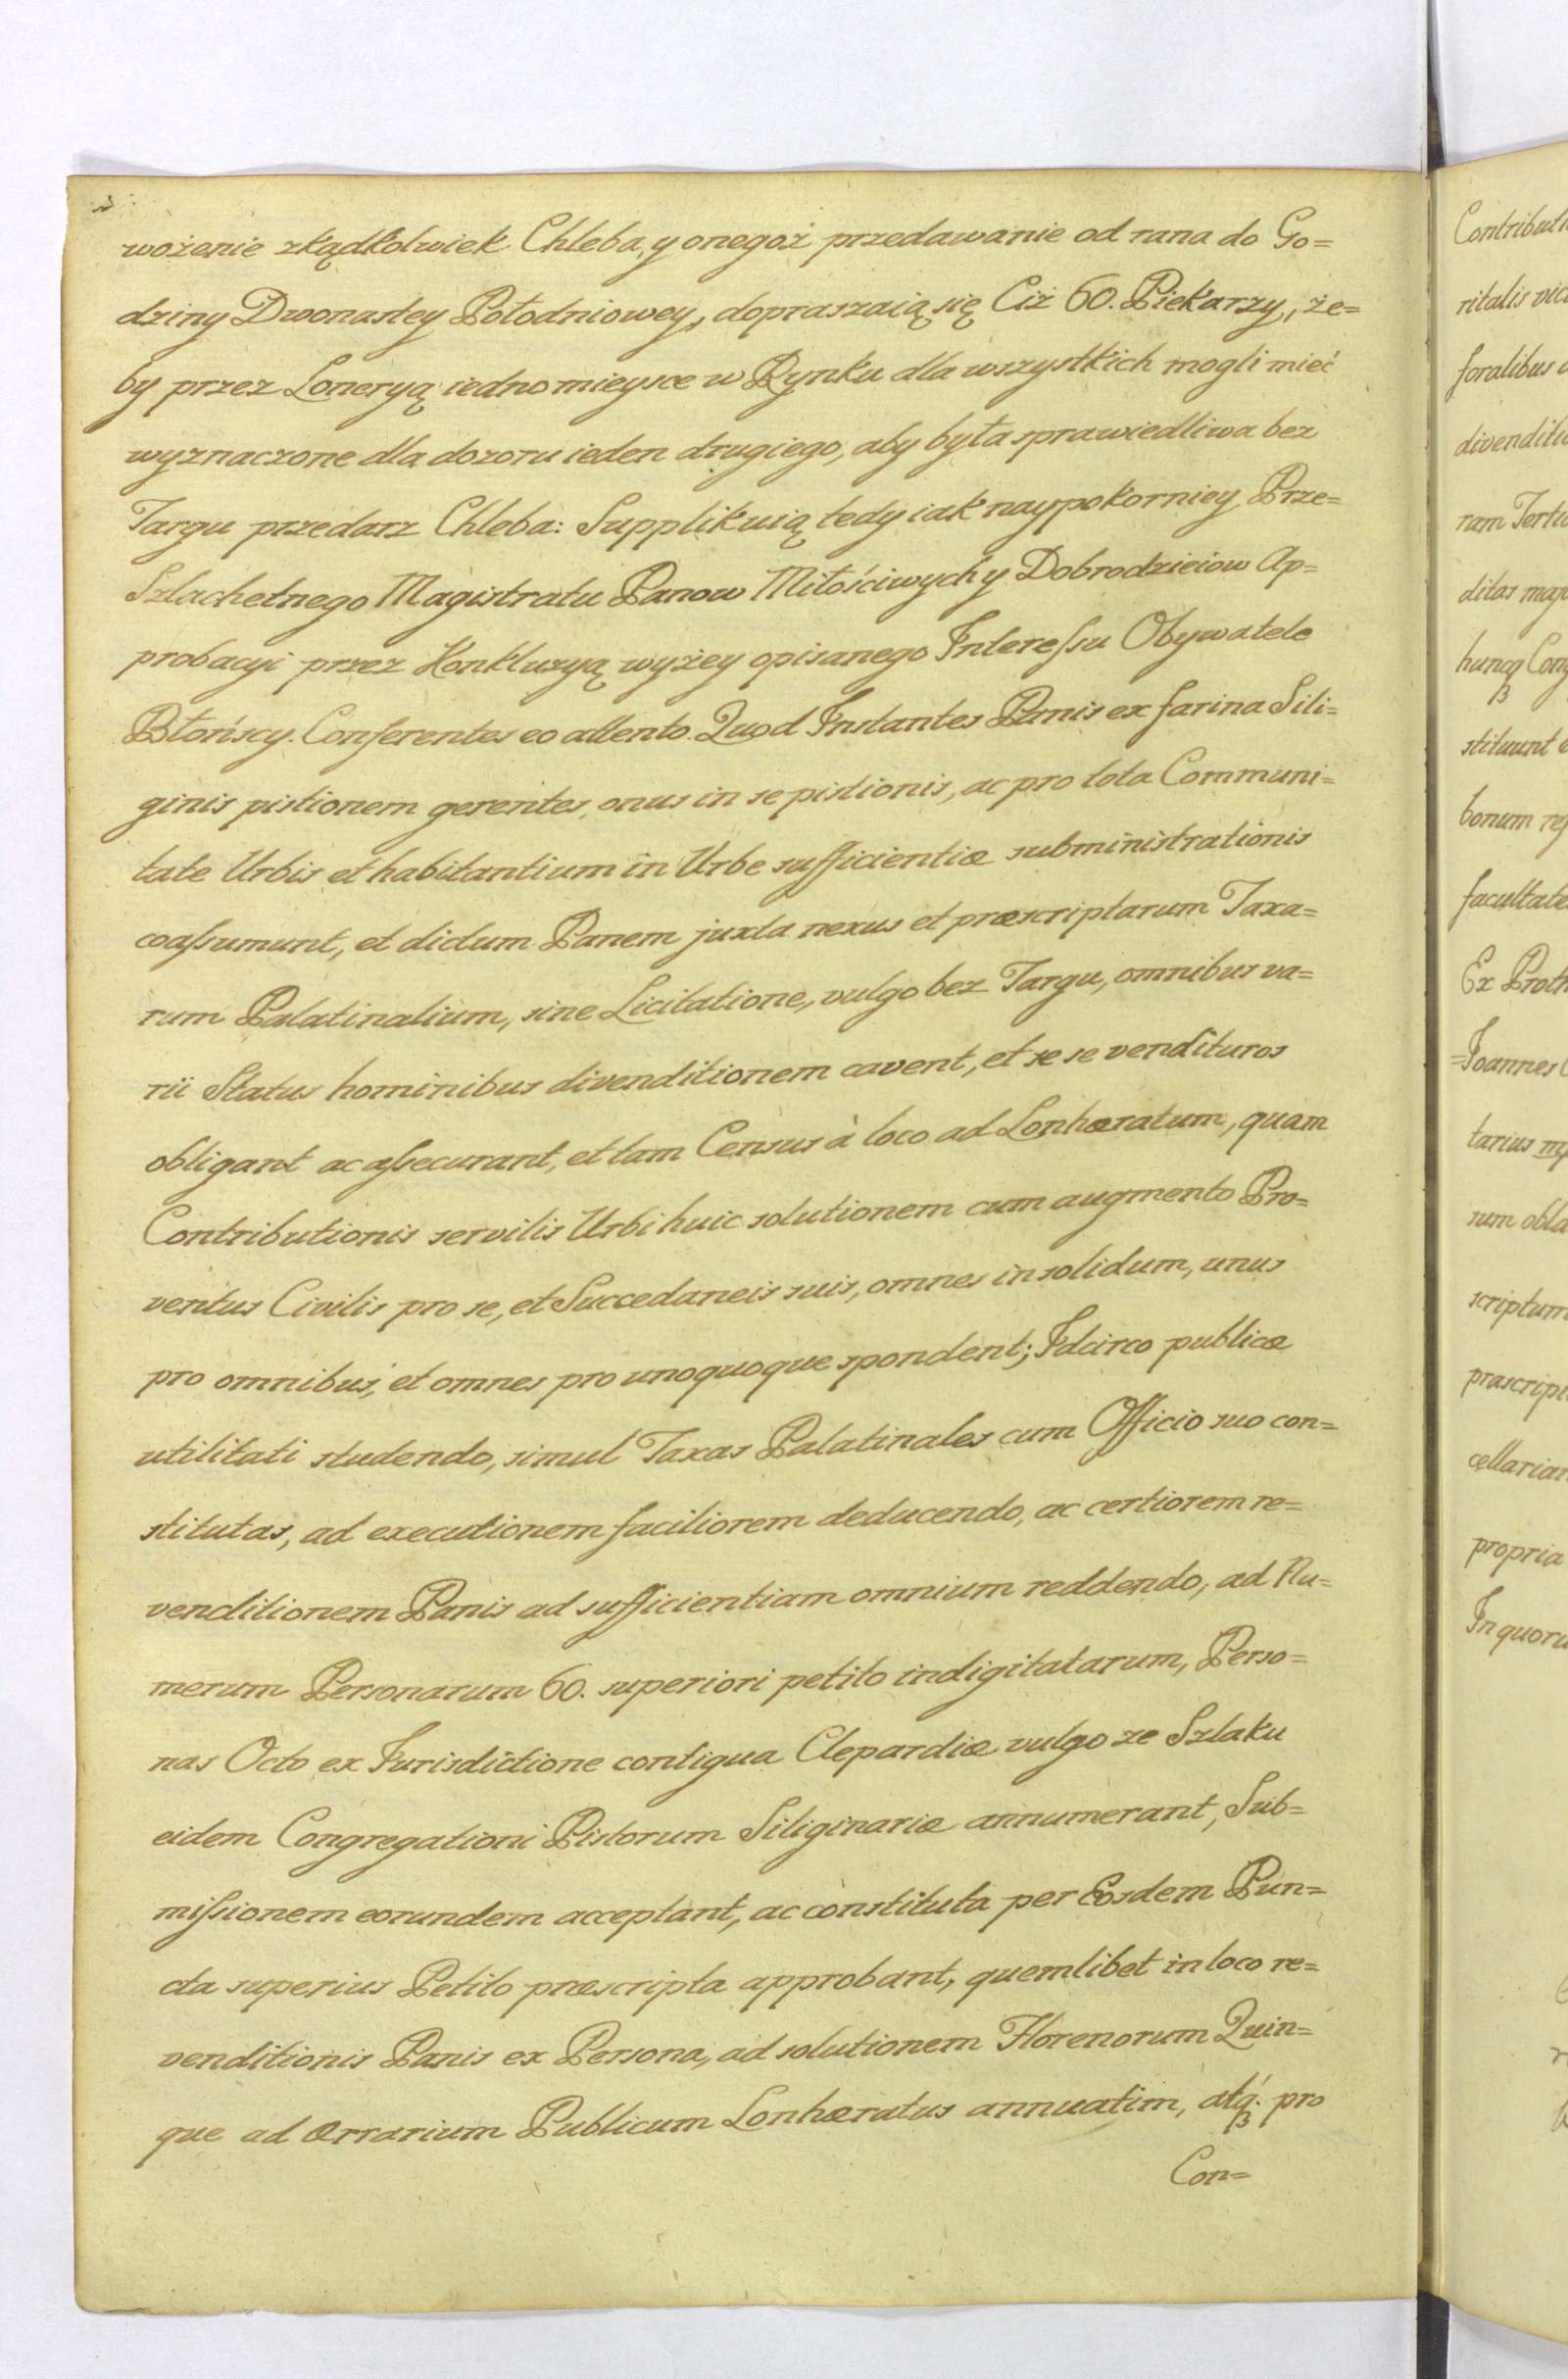 wożenie zkądkolwiek Chleba, y onegoż przedawanie od rana do Go=
dziny Dwonastey Połodniowey, dopraszaią się Ciż 60. Piekarzy, że=
by przez Loneryą iedno mieysce w Rynku dla wszystkich mogli mieć
wyznaczone dla dozoru ieden drugiego, aby była sprawiedliwa bez
Targu przedarz Chleba: Supplikuią tedy iak naypokorniey Prze=
Szlachetnego Magistratu Panow Miłościwych y Dobrodzieiow Ap=
probacyi przez Konkluzyą wyżey opisanego Interessu Obywatele
Błońscy. Conferentes eo attento. Quod Instantes Panis ex farina Sili=
ginis pistionem gerentes, onus in se pistionis, ac pro tota Communi=
tate Urbis et habitantium in Urbe sufficientiæ subministrationis
coassumunt, et dictum Panem juxta nexus et præscriptarum Taxa=
rum Palatinalium, sine Licitatione, vulgo bez Targu, omnibus va=
rii Status hominibus divenditionem cavent, et se se vendituros
obligant ac assecurant, et tam Census à loco ad Lonhæratum, quam
Contributionis servilis Urbi huic solutionem cum augmento Pro=
ventus Civilis pro se, et Succedaneis suis, omnes in solidum, unus
pro omnibus, et omnes pro unoquoque spondent; Idcirco publicæ
utilitati studendo, simul Taxas Palatinales cum Officio suo con=
stitutas, ad executionem faciliorem deducendo, ac certiorem re=
venditionem Panis ad sufficientiam omnium reddendo, ad Nu=
merum Personarum 60. superiori petito indigitatarum, Perso=
nas Octo ex Jurisdictione contigua Clepardiæ vulgo ze Szlaku
eidem Congregationi Pistorum Siliginariæ annumerant, Sub=
missionem eorundem acceptant, ac constituta per Eosdem Pun=
cta superius Petito præscripta approbant, quemlibet in loco re=
venditionis Panis ex Persona, ad solutionem Florenorum Quin=
que ad Ærrarium Publicum Lonhæratus annuatim, atq́ꝫ pro
Con=
Contributi
ritalis vic
foralibus
divenditi
ram Terti
ditas
huncq Con
stituunt
bonum
facultate
Ex Proth
=Joannes
tarius
rum obla
scriptum
præscript
cellarian
propria
In quoru